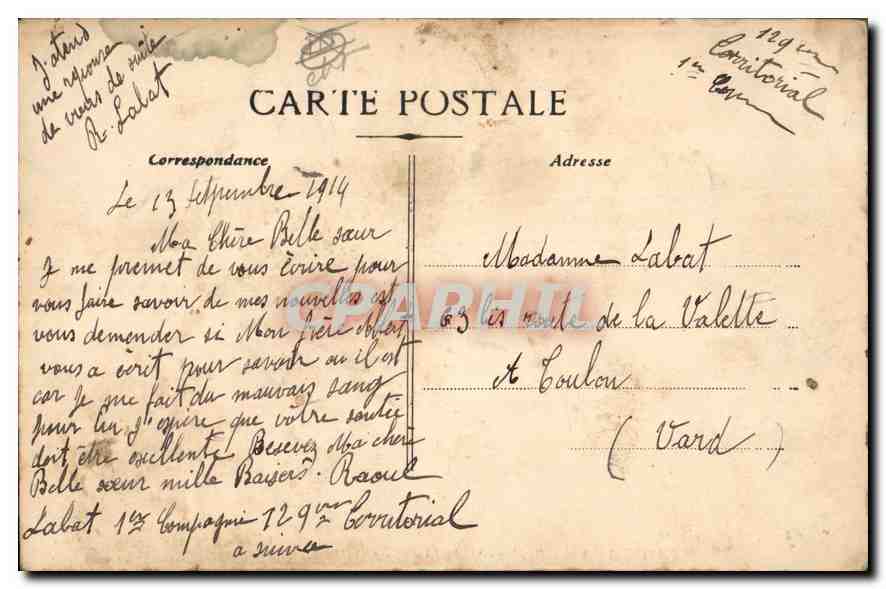 J'atend
une reponse
de vous de suite
R. Labat
129em
Territorial
1er Cogn
CARTE POSTALE
Correspondance
Adresse
Le 13 Septembre 1914
Ma Chère Belle sœur
Je me premet de vous écrire pour
vous faire savoir de mes nouvelles est
vous demender si Mon frère Albert
vous a écrit pour savoir ou il est
car Je me fait du mauvais sang
pour lui J'espire que vôtre santée
doit être exellente Resevez Ma chere
Belle sœur mille Baisers. Raoul
Labat 1er Compagnie 129em Territorial
a suivre
Madamme Labat
63 bis route de la Valette
A Toulon
(Vard)
CPARHIL